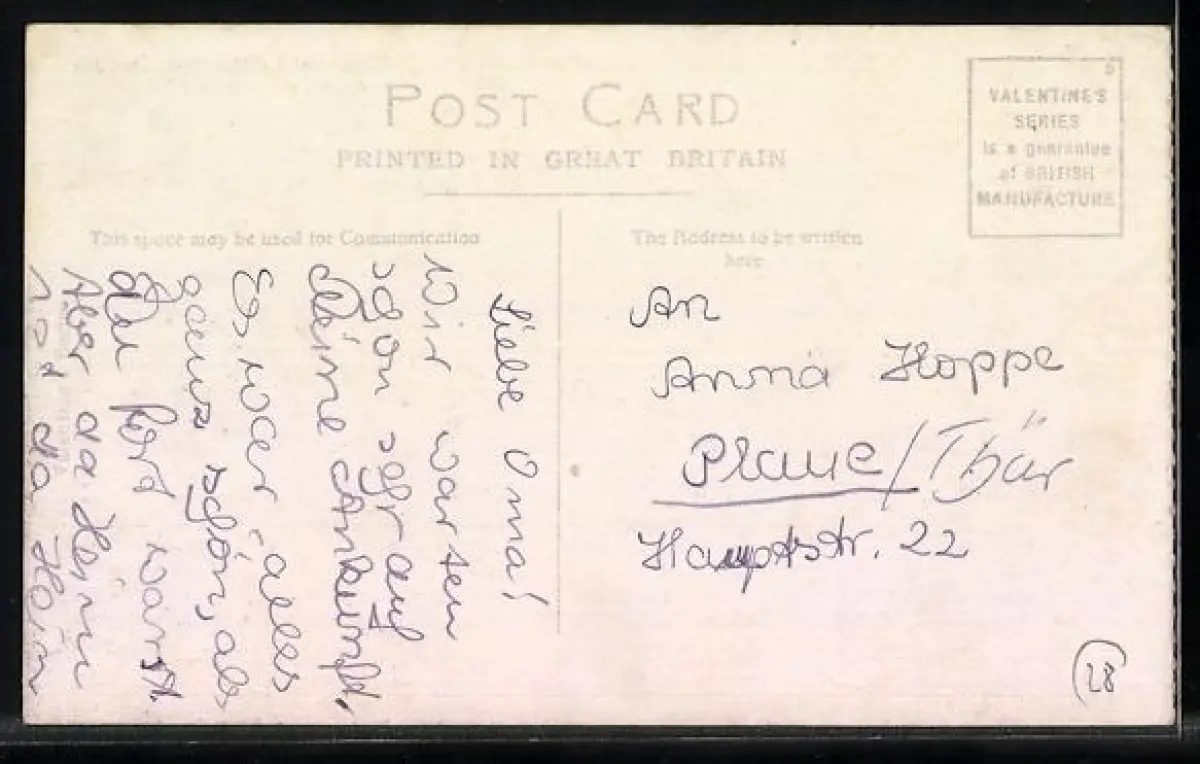 POST CARD
PRINTED IN GREAT BRITAIN
VALENTINE'S
SERIES
is a guarantee
of BRITISH
MANUFACTURE
6
This space may be used for Communication
The Address to be written
here
Liebe Oma!
Wir warten
schon sehr auf
deine Ankunft,
Es war alles
ganz schön, als
du fort warst
Aber da
da
An
Anna Hoppe
Plaue/Thür
Hauptstr. 22
28